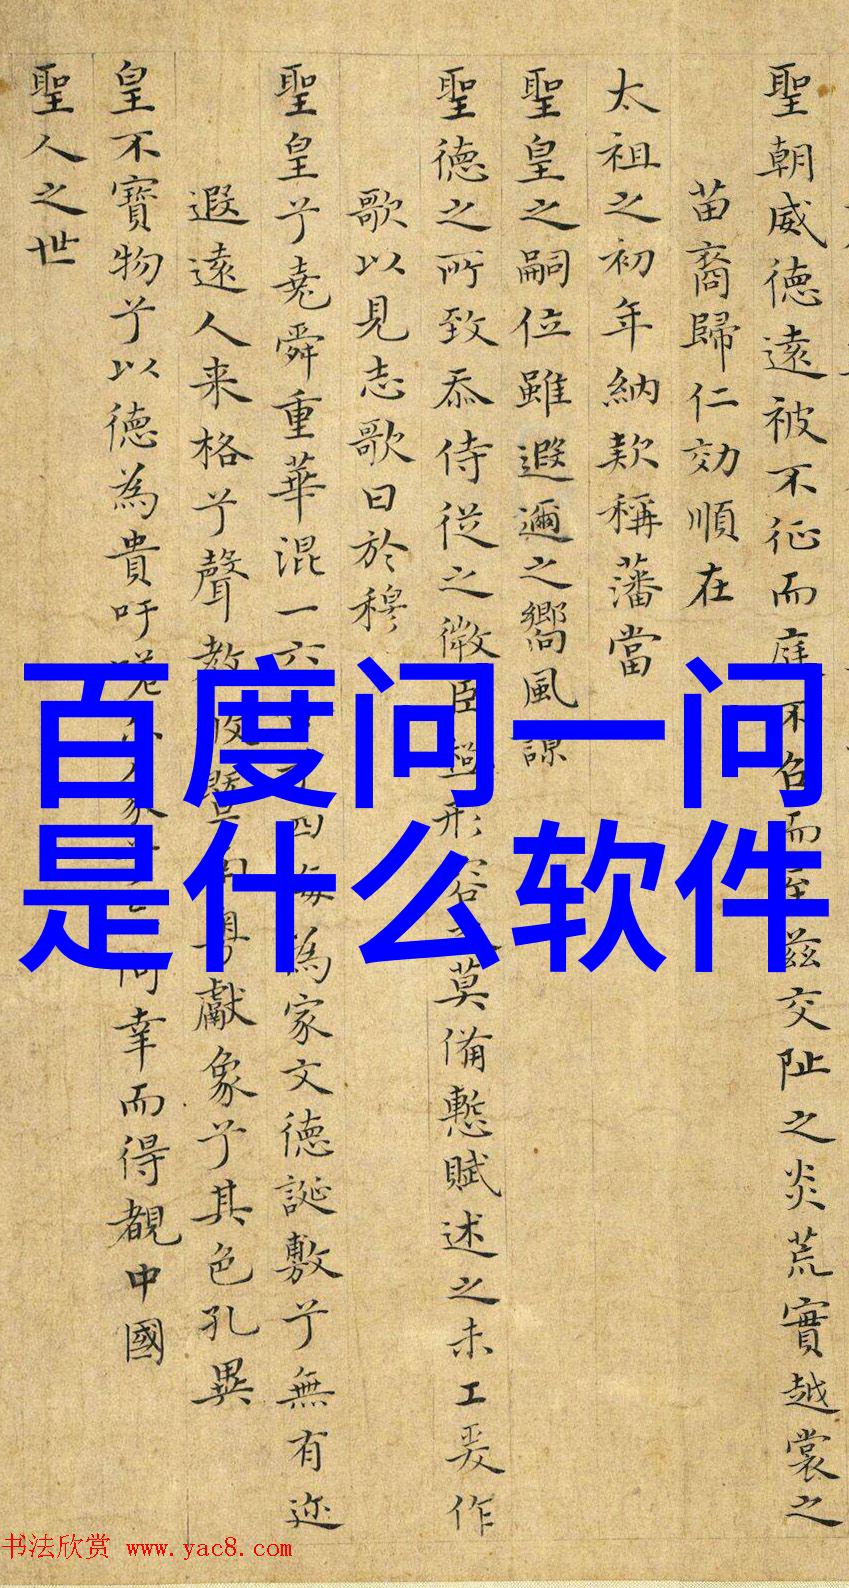 聖朝威德遠被不征而庭不召而至茲交阯之炎荒實越裳之
苗裔歸仁効順在
太祖之初年納欵稱藩當
聖皇之嗣位雖遐邇之嚮風諒
聖德之所致忝侍從之微臣
形容
莫備慙賦述之未工爰作
歌以見志歌曰於穆
聖皇兮堯舜重華混一六
四海為家文德誕敷兮無有迩
遐遠人来格兮聲教
獻象兮其色孔異
皇不寶物兮以德為貴吁嗟
何幸而得覩中國
聖人之世
百度问一问
是什么软件
书法欣赏 www.yac8.com